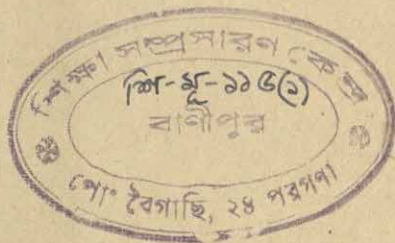 শিক্ষা সম্প্রসারণ কেন্দ্র
শি-মূ-১১৫(১)
বাণীপুর
পোঃ বৈগাছি, ২৪ পরগণা